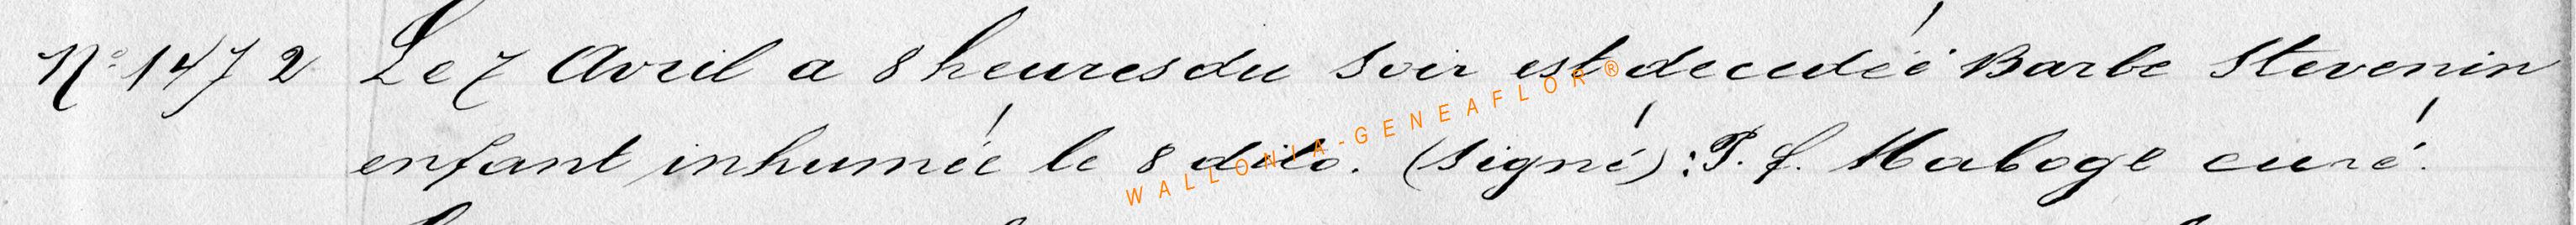 N° 1472 Le 7 Avril a 8 heures du Soir est decedéé Barbe Stevenin
enfant inhumée le 8 dito. (Signé) : P. f. Maboge curé.
WALLONIA-GENEAFLOR®